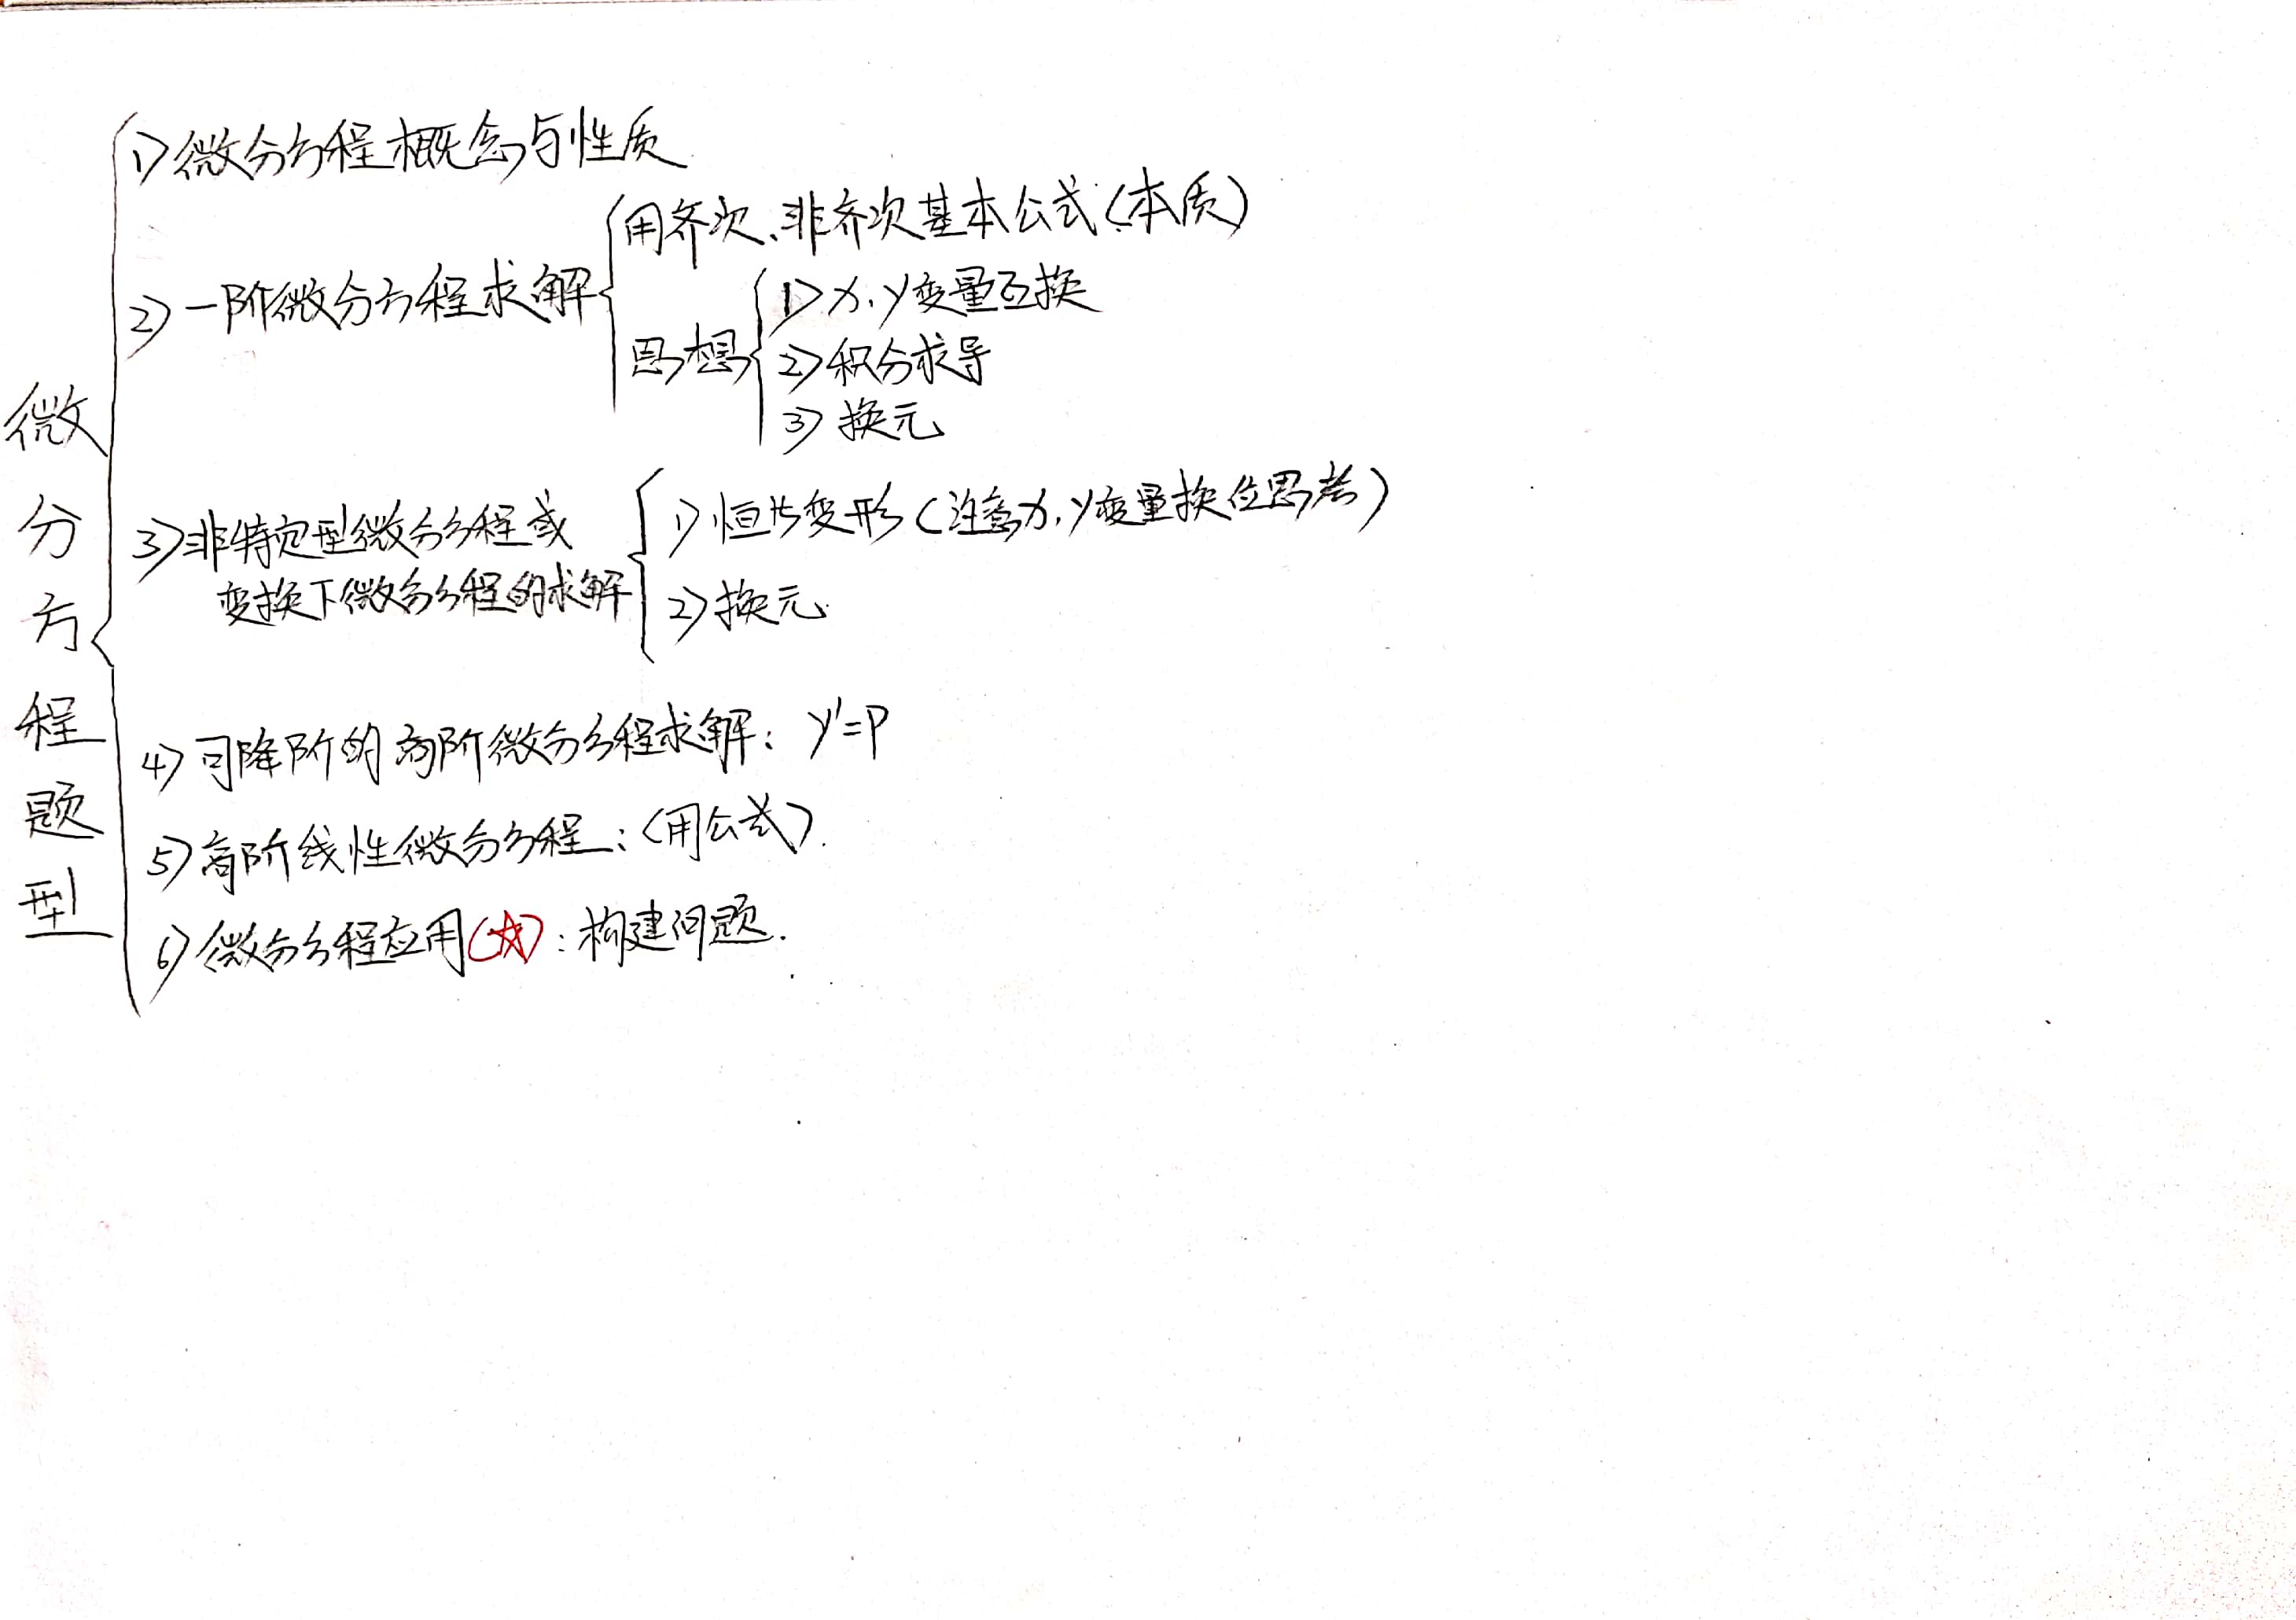 微分方程题型
1) 微分方程概念与性质
2) 一阶微分方程求解
用齐次、非齐次基本公式(本质)
思想
1) x、y变量互换
2) 积分求导
3) 换元
3) 非特定型微分方程或
变换下微分方程的求解
1) 恒等变形(注意x、y变量换位思考)
2) 换元.
4) 可降阶的高阶微分方程求解: y'=P
5) 高阶线性微分方程:(用公式).
6) 微分方程应用(☆):构建问题.